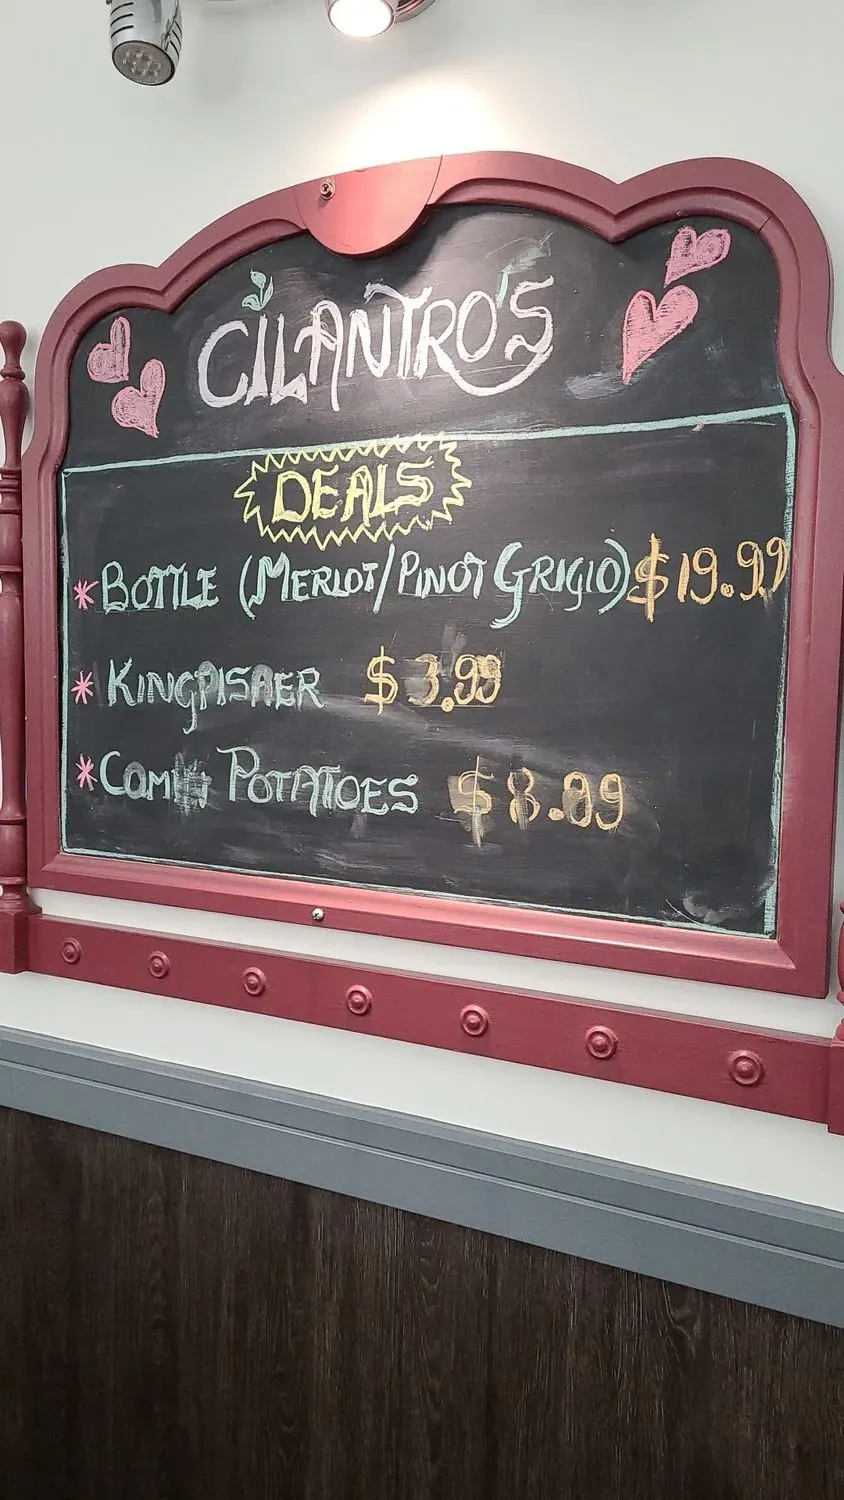 CILANTRO'S
DEALS
*BOTTLE (MERLOT/PINOT GRIGIO) $19.99
* KINGFISHER $3.99
* POTATOES $8.99